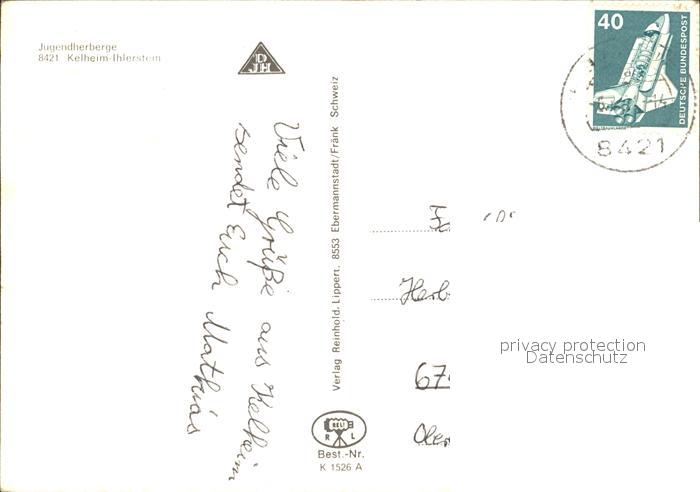 Jugendherberge
8421 Kelheim-Ihlerstein
DJH
40
DEUTSCHE BUNDESPOST
8421
Viele Grüße aus Kelheim
sendet Euch Mathias
Verlag Reinhold. Lippert. 8553 Ebermannstadt/Fränk Schweiz
67
privacy protection
Datenschutz
RELI
R L
Best.-Nr.
K 1526 A